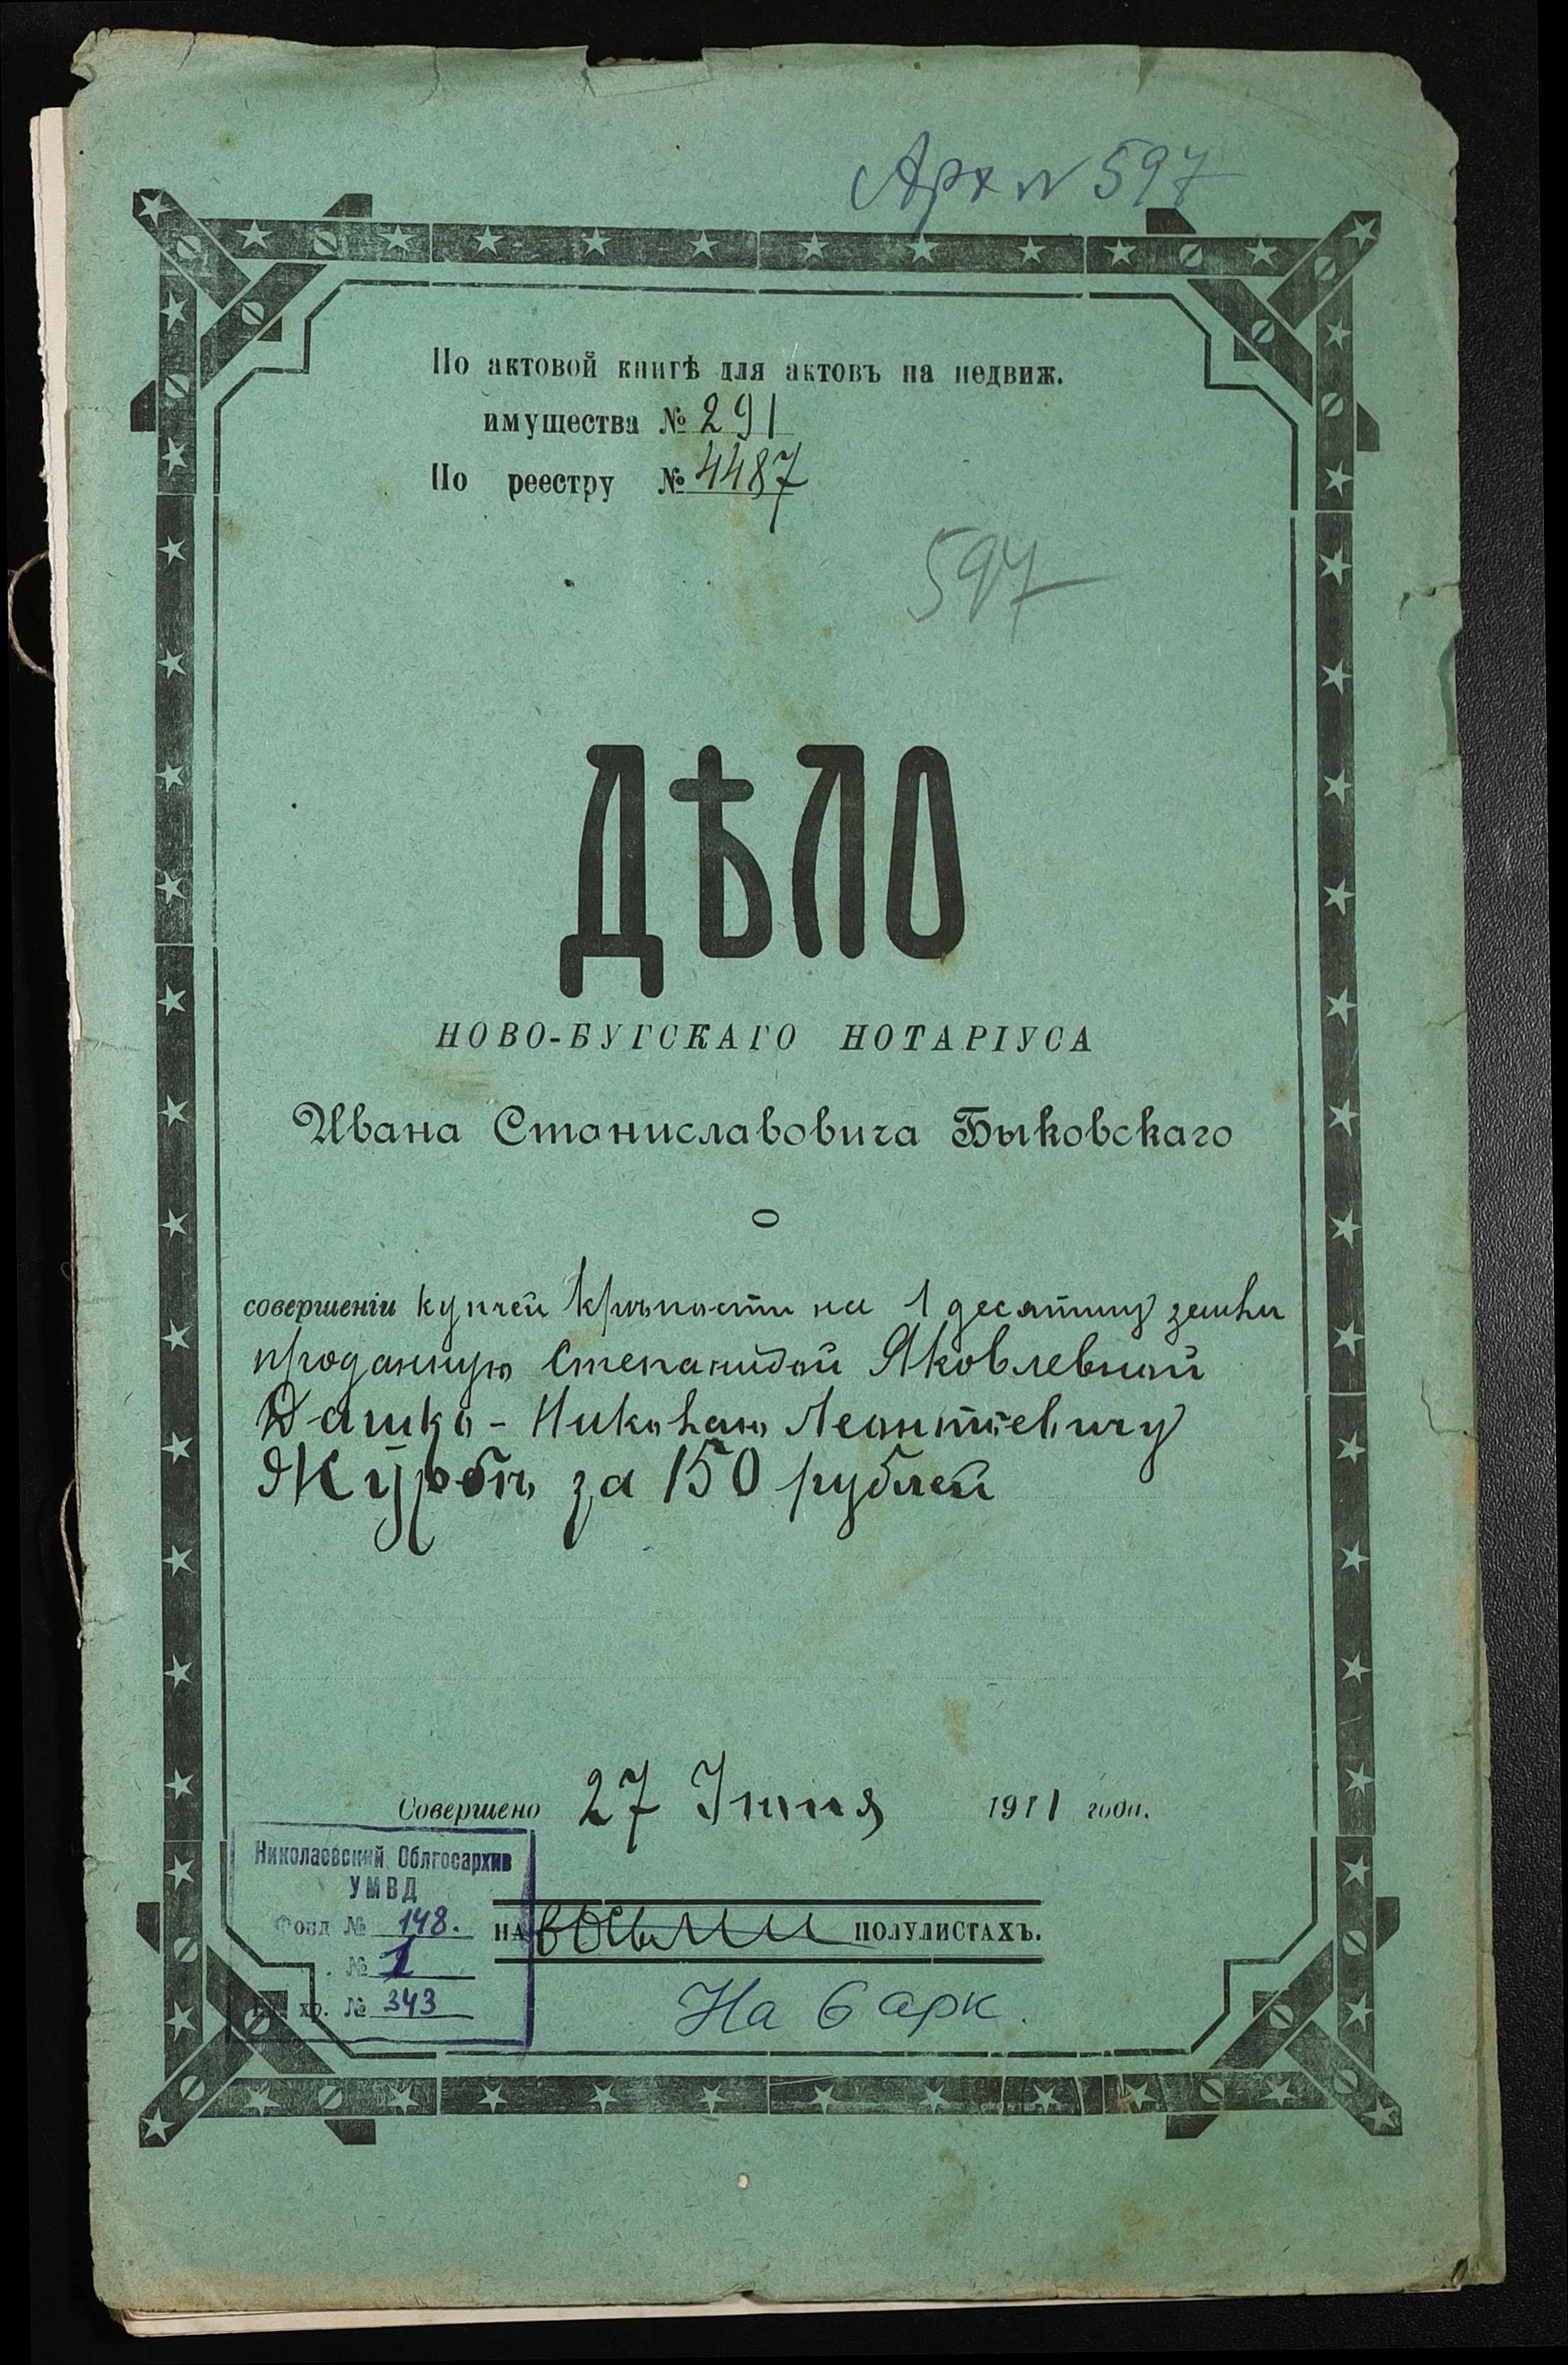 Арх № 597
По актовой книгѣ для актовъ на недвиж.
имущества № 291
По реестру № 4487
597
ДѢЛО
НОВО-БУГСКАГО НОТАРІУСА
Ивана Станиславовича Быковскаго
О
совершеніи купчей крѣпости на 1 десятину земли
проданную Степанидой Яковлевной
Дашко - Николаю Леонтьевичу
Журбѣ за 150 рублей
Совершено 27 Іюня 1911 года.
Николаевский Облгосархив
УМВД
Фонд № 148.
№ 1
хр. № 343
НА восьми ПОЛУЛИСТАХЪ.
На 6 арк.